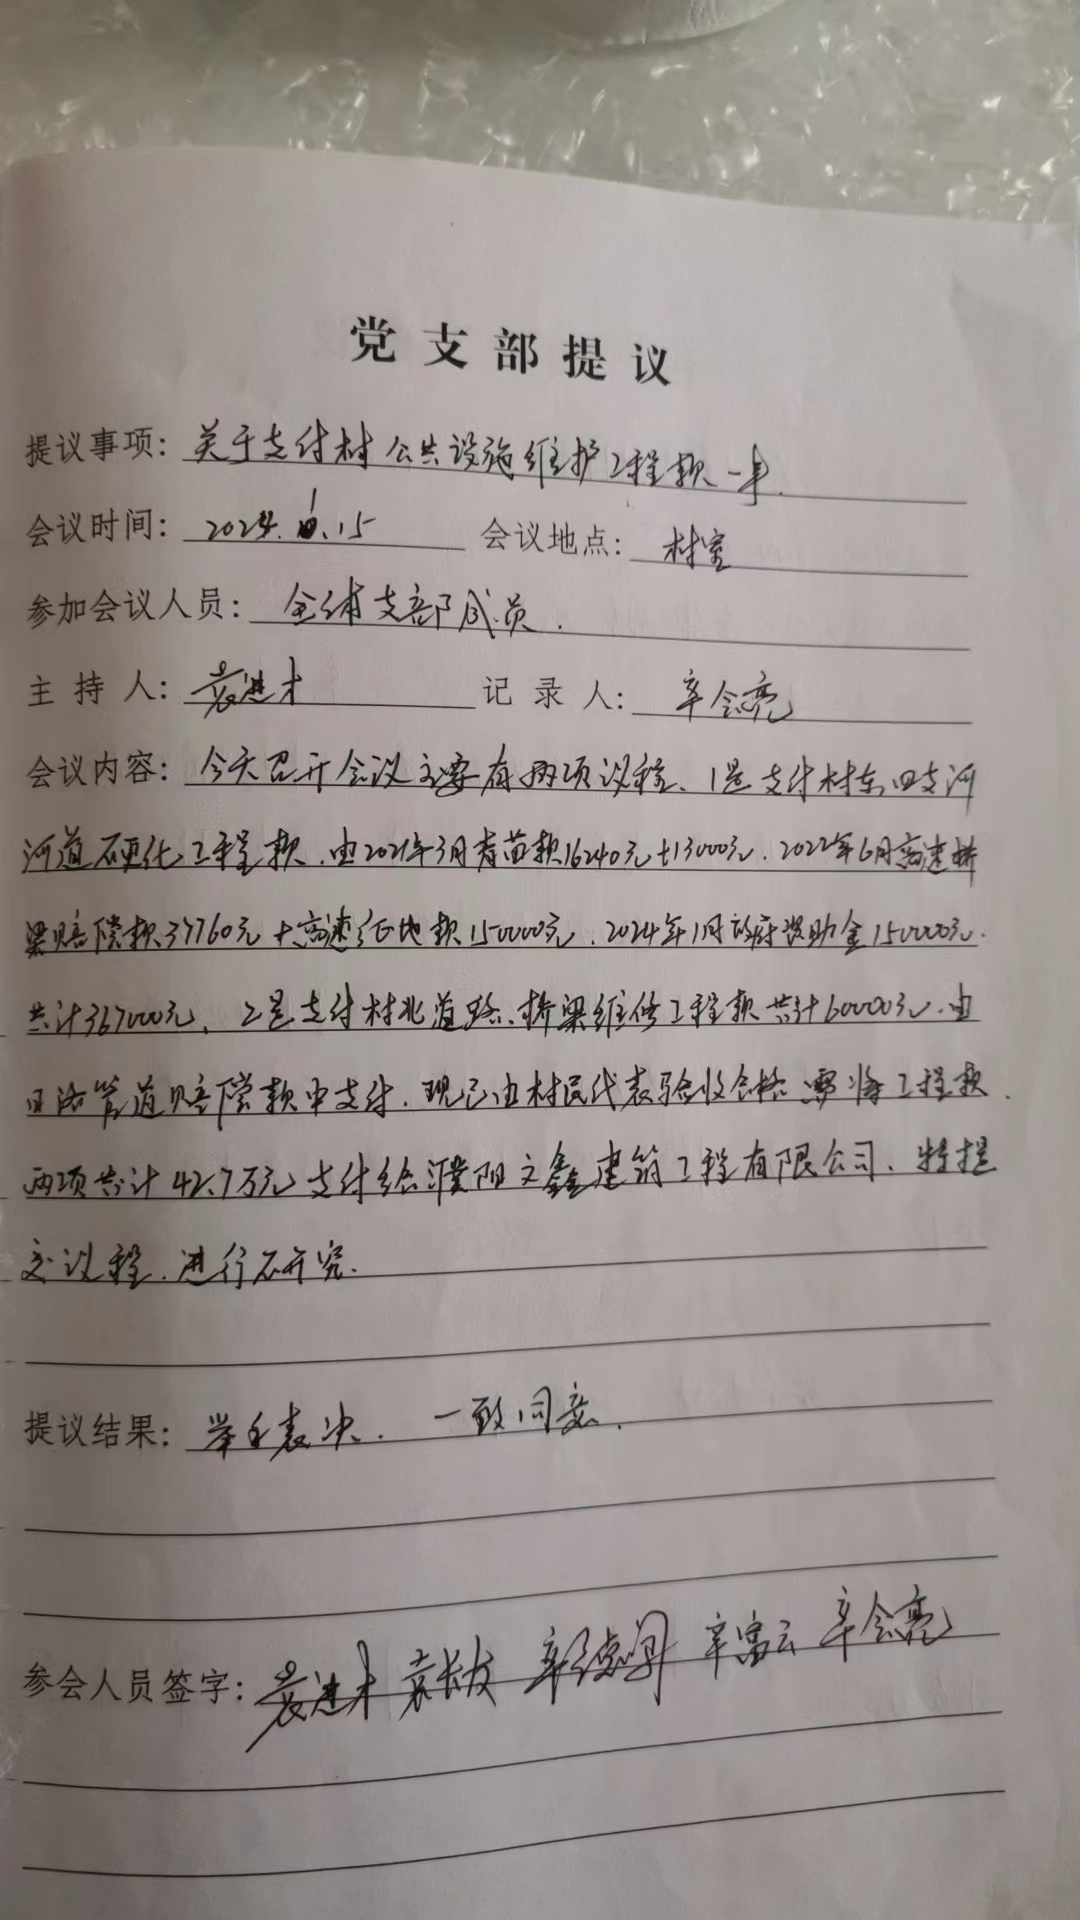 党支部提议
提议事项：关于支付村公共设施维护工程款一事.
会议时间：2024.1.15 会议地点：村室
参加会议人员：全体支部成员.
主持人：袁进才 记录人：辛会亮
会议内容：今天召开会议主要有两项议程、1是支付村东四支河
河道硬化工程款.由2021年3月青苗款16240元+13000元.2022年6月高速桥
梁赔偿款37760元+高速征地款150000元.2024年1月政府资助金150000元.
共计367000元.2是支付村北道路、桥梁维修工程款共计60000元.由
日洛管道赔偿款中支付.现已由村民代表验收合格需将工程款
两项共计42.7万元支付给濮阳文鑫建筑工程有限公司.特提
交议程.进行研究.
提议结果：举手表决.一致同意.
参会人员签字：袁进才 袁长友 辛富云 辛会亮